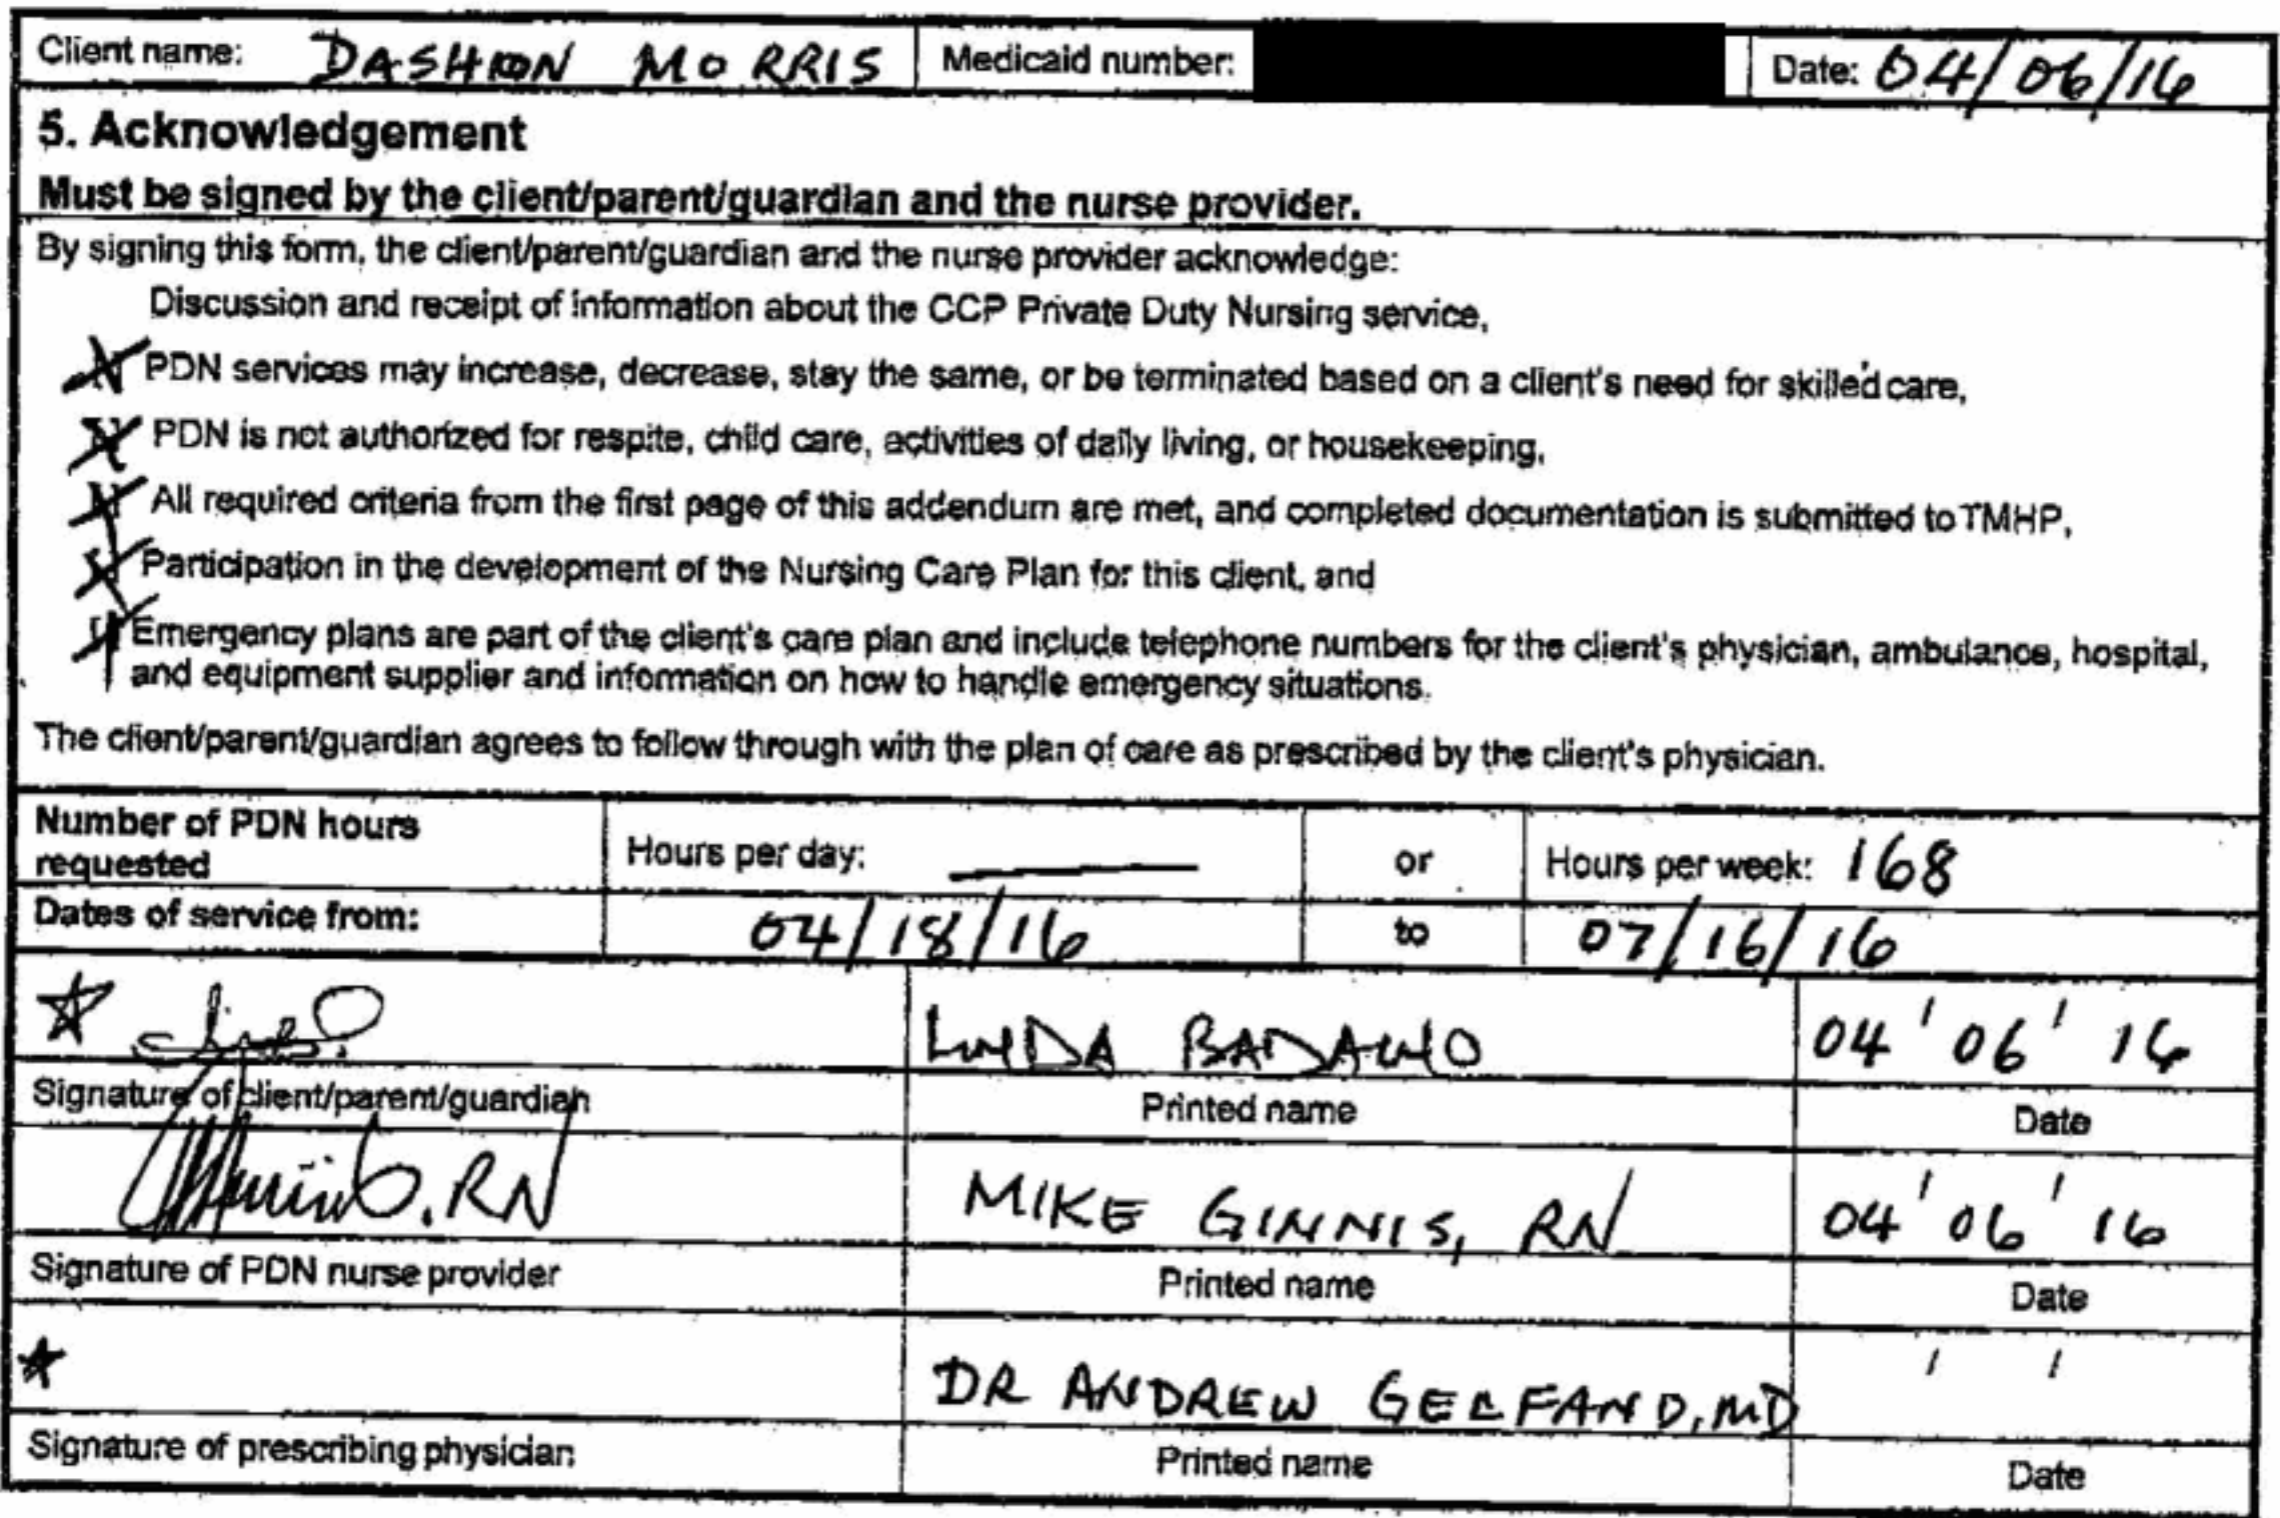 Client name: DASHON MORRIS Medicaid number: Date: 04/06/16
5. Acknowledgement
Must be signed by the client/parent/guardian and the nurse provider.
By signing this form, the client/parent/guardian and the nurse provider acknowledge:
Discussion and receipt of information about the CCP Private Duty Nursing service,
PDN services may increase, decrease, stay the same, or be terminated based on a client's need for skilled care,
PDN is not authorized for respite, child care, activities of daily living, or housekeeping,
All required criteria from the first page of this addendum are met, and completed documentation is submitted to TMHP,
Participation in the development of the Nursing Care Plan for this client, and
Emergency plans are part of the client's care plan and include telephone numbers for the client's physician, ambulance, hospital,
and equipment supplier and information on how to handle emergency situations.
The client/parent/guardian agrees to follow through with the plan of care as prescribed by the client's physician.
Number of PDN hours
requested Hours per day: or Hours per week: 168
Dates of service from: 04/18/16 to 07/16/16
LINDA BADAWO 04 / 06 / 16
Signature of client/parent/guardian Printed name Date
RN MIKE GINNIS, RN 04 / 06 / 16
Signature of PDN nurse provider Printed name Date
DR ANDREW GELFAND, MD / /
Signature of prescribing physician Printed name Date